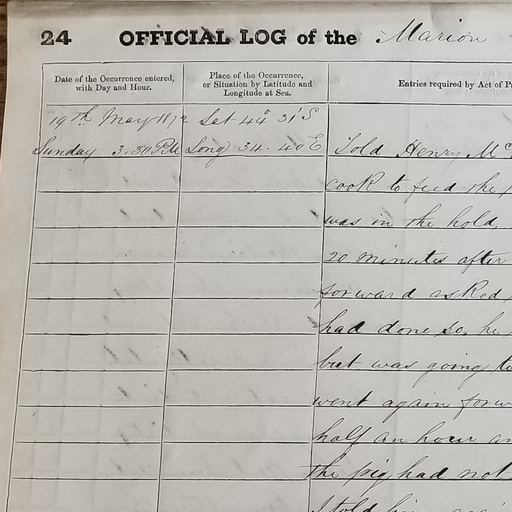 24 OFFICIAL LOG of the Marion
Date of the Occurrence entered,
with Day and Hour.
Place of the Occurrence,
or Situation by Latitude and
Longitude at Sea.
Entries required by Act of P
19th May 1872 Lat 44° 31' S
Sunday 3.30 PM Long 34. 40 E
Told Henry Mc
cook to feed the p
was in the hold,
20 minutes after
forward asked
had done so, he
but was going to
went again forw
half an hour an
the pig had not
I told him